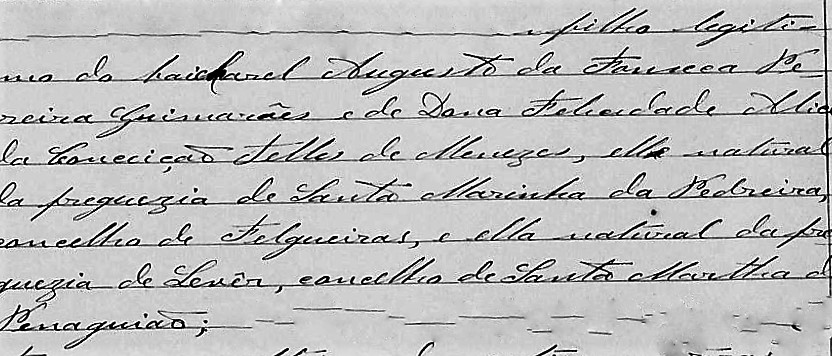 filho legiti-
mo do bacharel Augusto da Fonseca Pe-
reira Guimarães e de Dona Felicidade Alice
da Conceição Telles de Menezes, elle natural
da freguezia de Santa Marinha da Pedreira,
concelho de Felgueiras, e ella natural da fre
guezia de Levêr, concelho de Santa Martha d
Penaguião;